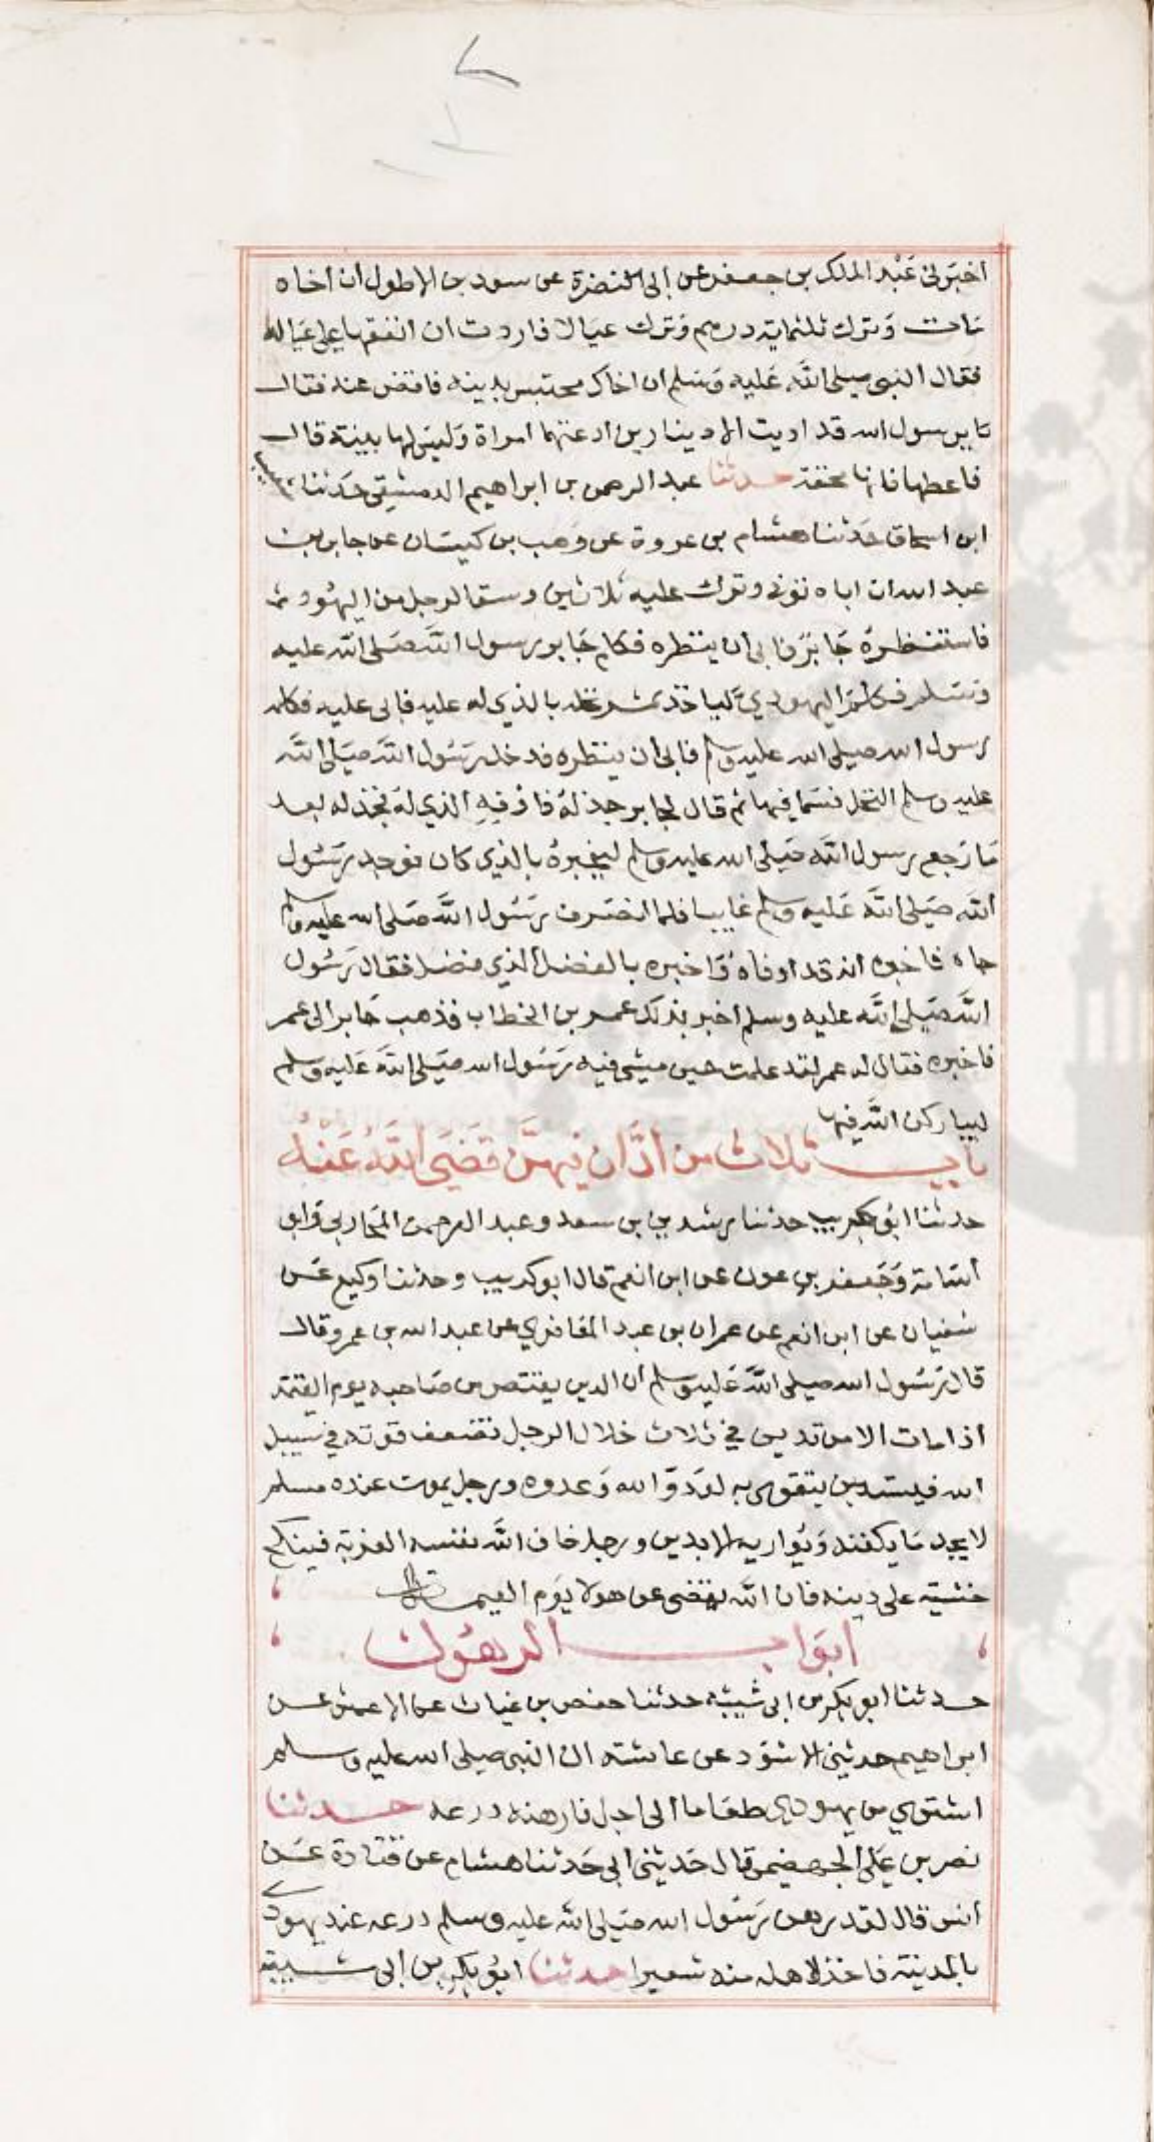 اخبرني عبد الملك بن جعفر عن ابي نضرة عن سعد بن الاطول ان اخاه
مات وترك ثلثماية درهم وترك عيالا فاردت ان انفقها على عياله
فقال النبي صلى الله عليه وسلم ان اخاك محتبس بدينه فاقض عنه فقال
يا رسول الله قد اديت الا دينارين ادعتهما امراة وليس لها بينة قال
فاعطها فانها محقة حدثنا عبد الرحمن بن ابراهيم الدمشقي حدثنا شعيب
ابن اسحاق حدثنا هشام بن عروة عن وهب بن كيسان عن جابر بن
عبد الله ان اباه توفي وترك عليه ثلاثين وسقا لرجل من اليهود
فاستنظره جابر فابى ان ينظره فكلم جابر رسول الله صلى الله عليه
وسلم فكلم اليهودي لياخذ ثمر نخله بالذي له عليه فابى عليه فكلمه
رسول الله صلى الله عليه وسلم فابى ان ينظره فدخل رسول الله صلى الله
عليه وسلم النخل فمشا فيها ثم قال لجابر جذ له فاوفه الذي له فجذ له بعد
ما رجع رسول الله صلى الله عليه وسلم ليخبره بالذي كان فوجد رسول
الله صلى الله عليه وسلم غايبا فلما انصرف رسول الله صلى الله عليه وسلم
جاه فاخبره انه قد اوفاه واخبره بالفضل الذي فضل فقال رسول
الله صلى الله عليه وسلم اخبر بذلك عمر بن الخطاب فذهب جابر الى عمر
فاخبره فقال له عمر لقد علمت حين مشى فيه رسول الله صلى الله عليه وسلم
ليباركن الله فيها
باب ثلاث من ادان فيهن قضى الله عنه
حدثنا ابو كريب حدثنا رشدين بن سعد وعبد الرحمن المحاربي وابو
اسامة وجعفر بن عون عن ابن انعم قال ابو كريب وحدثنا وكيع عن
سفيان عن ابن انعم عن عمران بن عبد المعافري عن عبد الله بن عمرو قال
قال رسول الله صلى الله عليه وسلم ان الدين يقتص من صاحبه يوم القيمة
اذا مات الا من تدين في ثلاث خلال الرجل تضعف قوته في سبيل
الله فيستدين يتقوى به لعدو الله وعدوه ورجل يموت عنده مسلم
لا يجد ما يكفنه ويواريه الا بدين ورجل خاف الله نفسه العزبة فينكح
خشية على دينه فان الله يقضي عن هولا يوم القيمة
ابواب الرهون
حدثنا ابو بكر بن ابي شيبة حدثنا حفص بن غياث عن الاعمش عن
ابراهيم حدثني الاسود عن عائشة ان النبي صلى الله عليه وسلم
اشترى من يهودي طعاما الى اجل فارهنه درعه حدثنا
نصر بن علي الجهضمي قال حدثني ابي حدثنا هشام عن قتادة عن
انس قال لقد رهن رسول الله صلى الله عليه وسلم درعه عند يهودي
بالمدينة فاخذ لاهله منه شعيرا حدثنا ابو بكر بن ابي شيبة